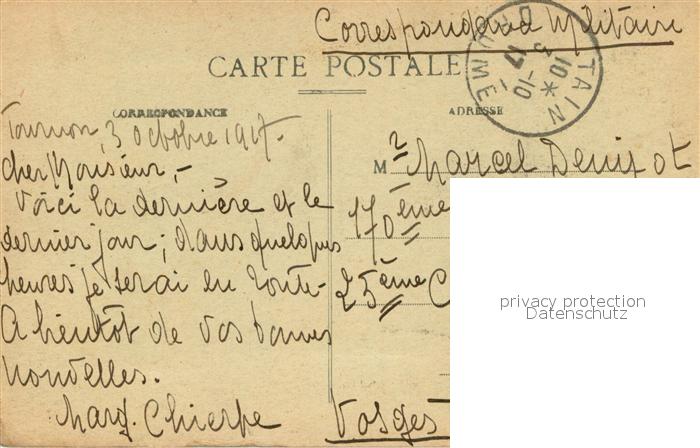 Correspondance Militaire
CARTE POSTALE
CORRESPONDANCE
ADRESSE
TAIN
DROME
10 *
5-10
17
Tournon, 3 octobre 1917.
Cher Monsieur, -
Voici la dernière et le
dernier jour; dans quelques
heures je serai en route -
A bientôt de vos bonnes
nouvelles.
Marg. Chierpe
Mr Marcel Denizot
170ème
25ème C
Vosges
privacy protection
Datenschutz